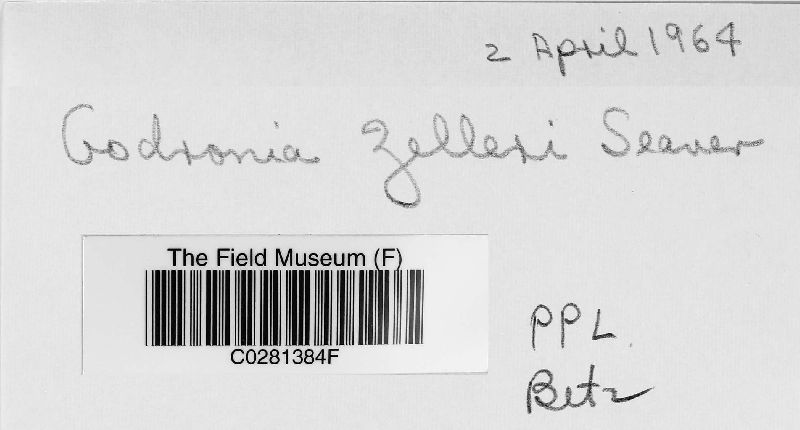 2 April 1964
Godronia Zelleri Seaver
The Field Museum (F)
C0281384F
PPL.
Betz